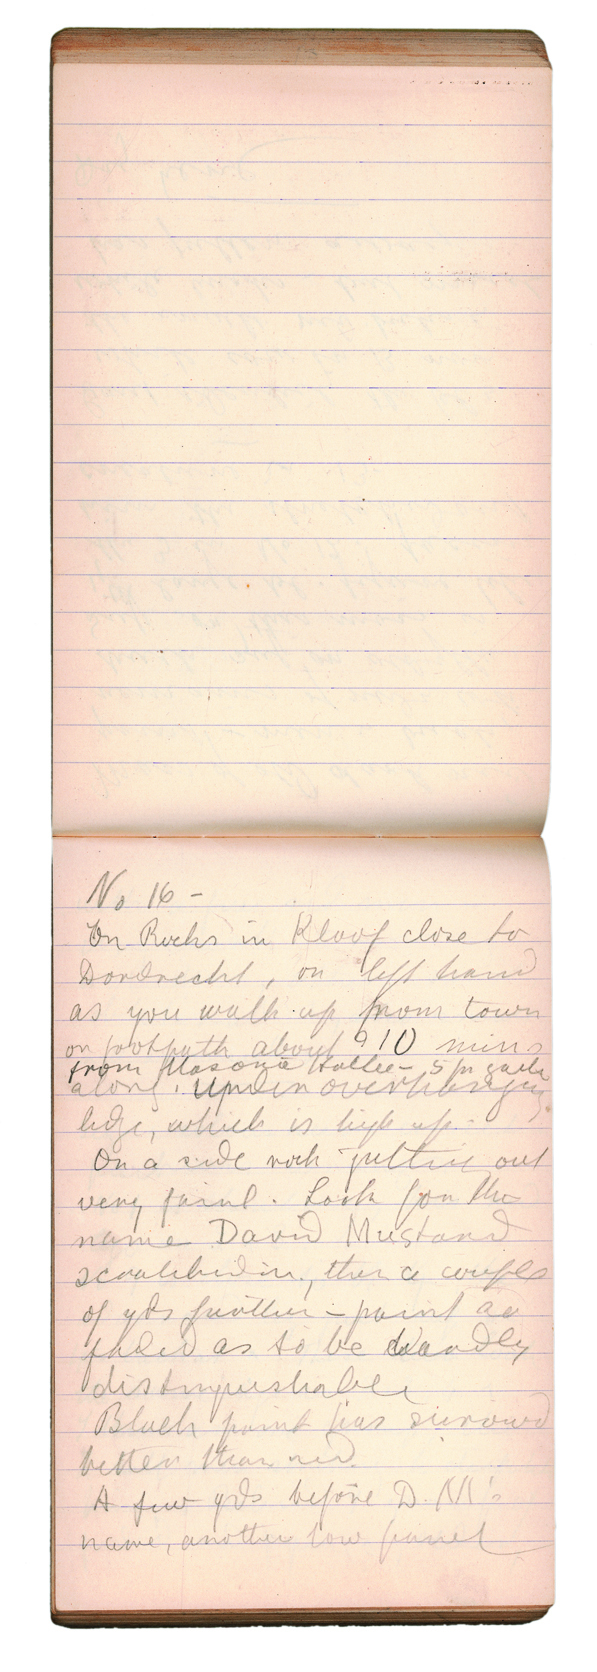 No 16 -
On Rocks in Kloof close to
Dordrecht, on left hand
as you walk up from town
on footpath about 910 mins
from Masonic Hotel - 5
along. Up in overhanging
ledge, which is high up.
On a side rock jutting out
very faint. Look for the
name David Mustard
scratched in, then a couple
of yds further - paint so
faded as to be hardly
distinguishable
Black paint has survived
better than red.
A few yds before D. M's
name, another low panel